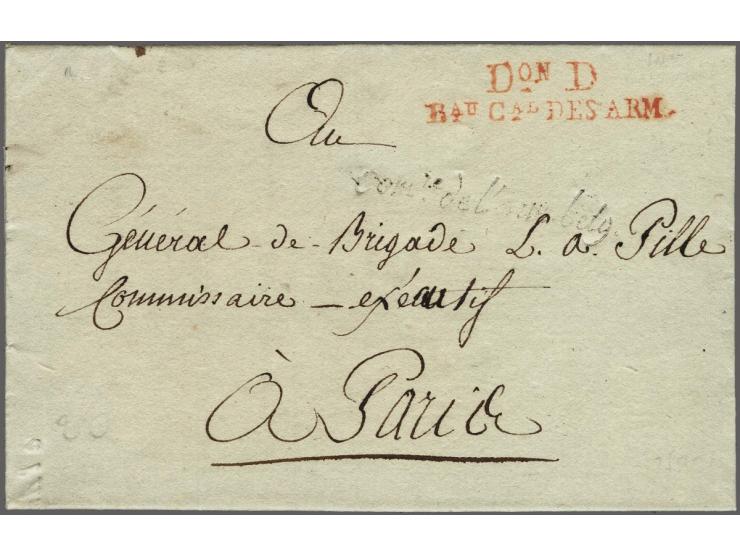 Dᵒᴺ D
Bᴬᵁ Cᴬᴸ DES ARM.
Au
Com.ʳᵉ de l'arm. belg.
Général de Brigade L. a. Pille
Commissaire exécutif
à Paris